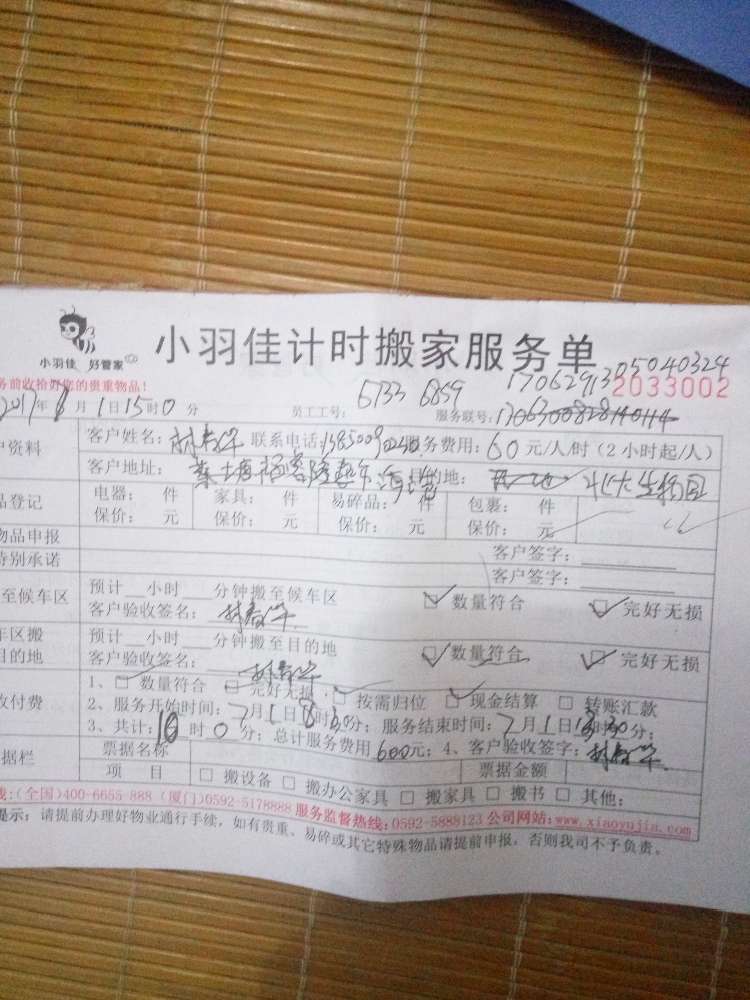 小羽佳 好管家
小羽佳计时搬家服务单
务前收拾好您的贵重物品! 1706291305040324
2033002
2017年 月1日15时0分 员工工号: 6733 6859 服务联号:
户资料 客户姓名: 联系电话: 服务费用: 60元/人/时(2小时起/人)
客户地址: 目的地:
品登记 电器: 件 家具: 件 易碎品: 件 包裹: 件
保价: 元 保价: 元 保价: 元 保价: 元
物品申报 客户签字:
特别承诺 客户签字:
至候车区 预计__小时__分钟搬至候车区
客户验收签名: ☑数量符合 ☑完好无损
车区搬 预计__小时__分钟搬至目的地
目的地 客户验收签名: ☑数量符合 ☑完好无损
1、☑数量符合 ☑完好无损 ☑按需归位 ☑现金结算 □转账汇款
收付费 2、服务开始时间: 7月1日8时30分; 服务结束时间: 7月1日18时30分;
3、共计: 10时0分; 总计服务费用600元; 4、客户验收签字:
据栏 票据名称 票据金额
项目 □搬设备 □搬办公家具 □搬家具 □搬书 □其他:
线:(全国)400-6655-888 (厦门)0592-5178888 服务监督热线:0592-5888123 公司网站:www.xiaoyujia.com
提示: 请提前办理好物业通行手续, 如有贵重、易碎或其它特殊物品请提前申报, 否则我司不予负责。